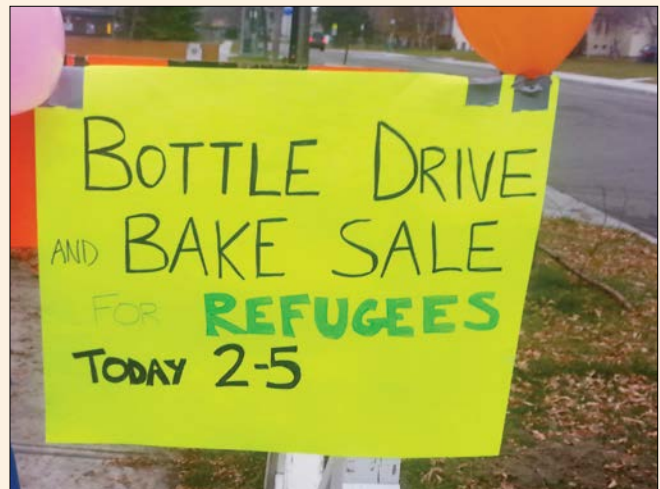 BOTTLE DRIVE
AND BAKE SALE
FOR REFUGEES
TODAY 2-5